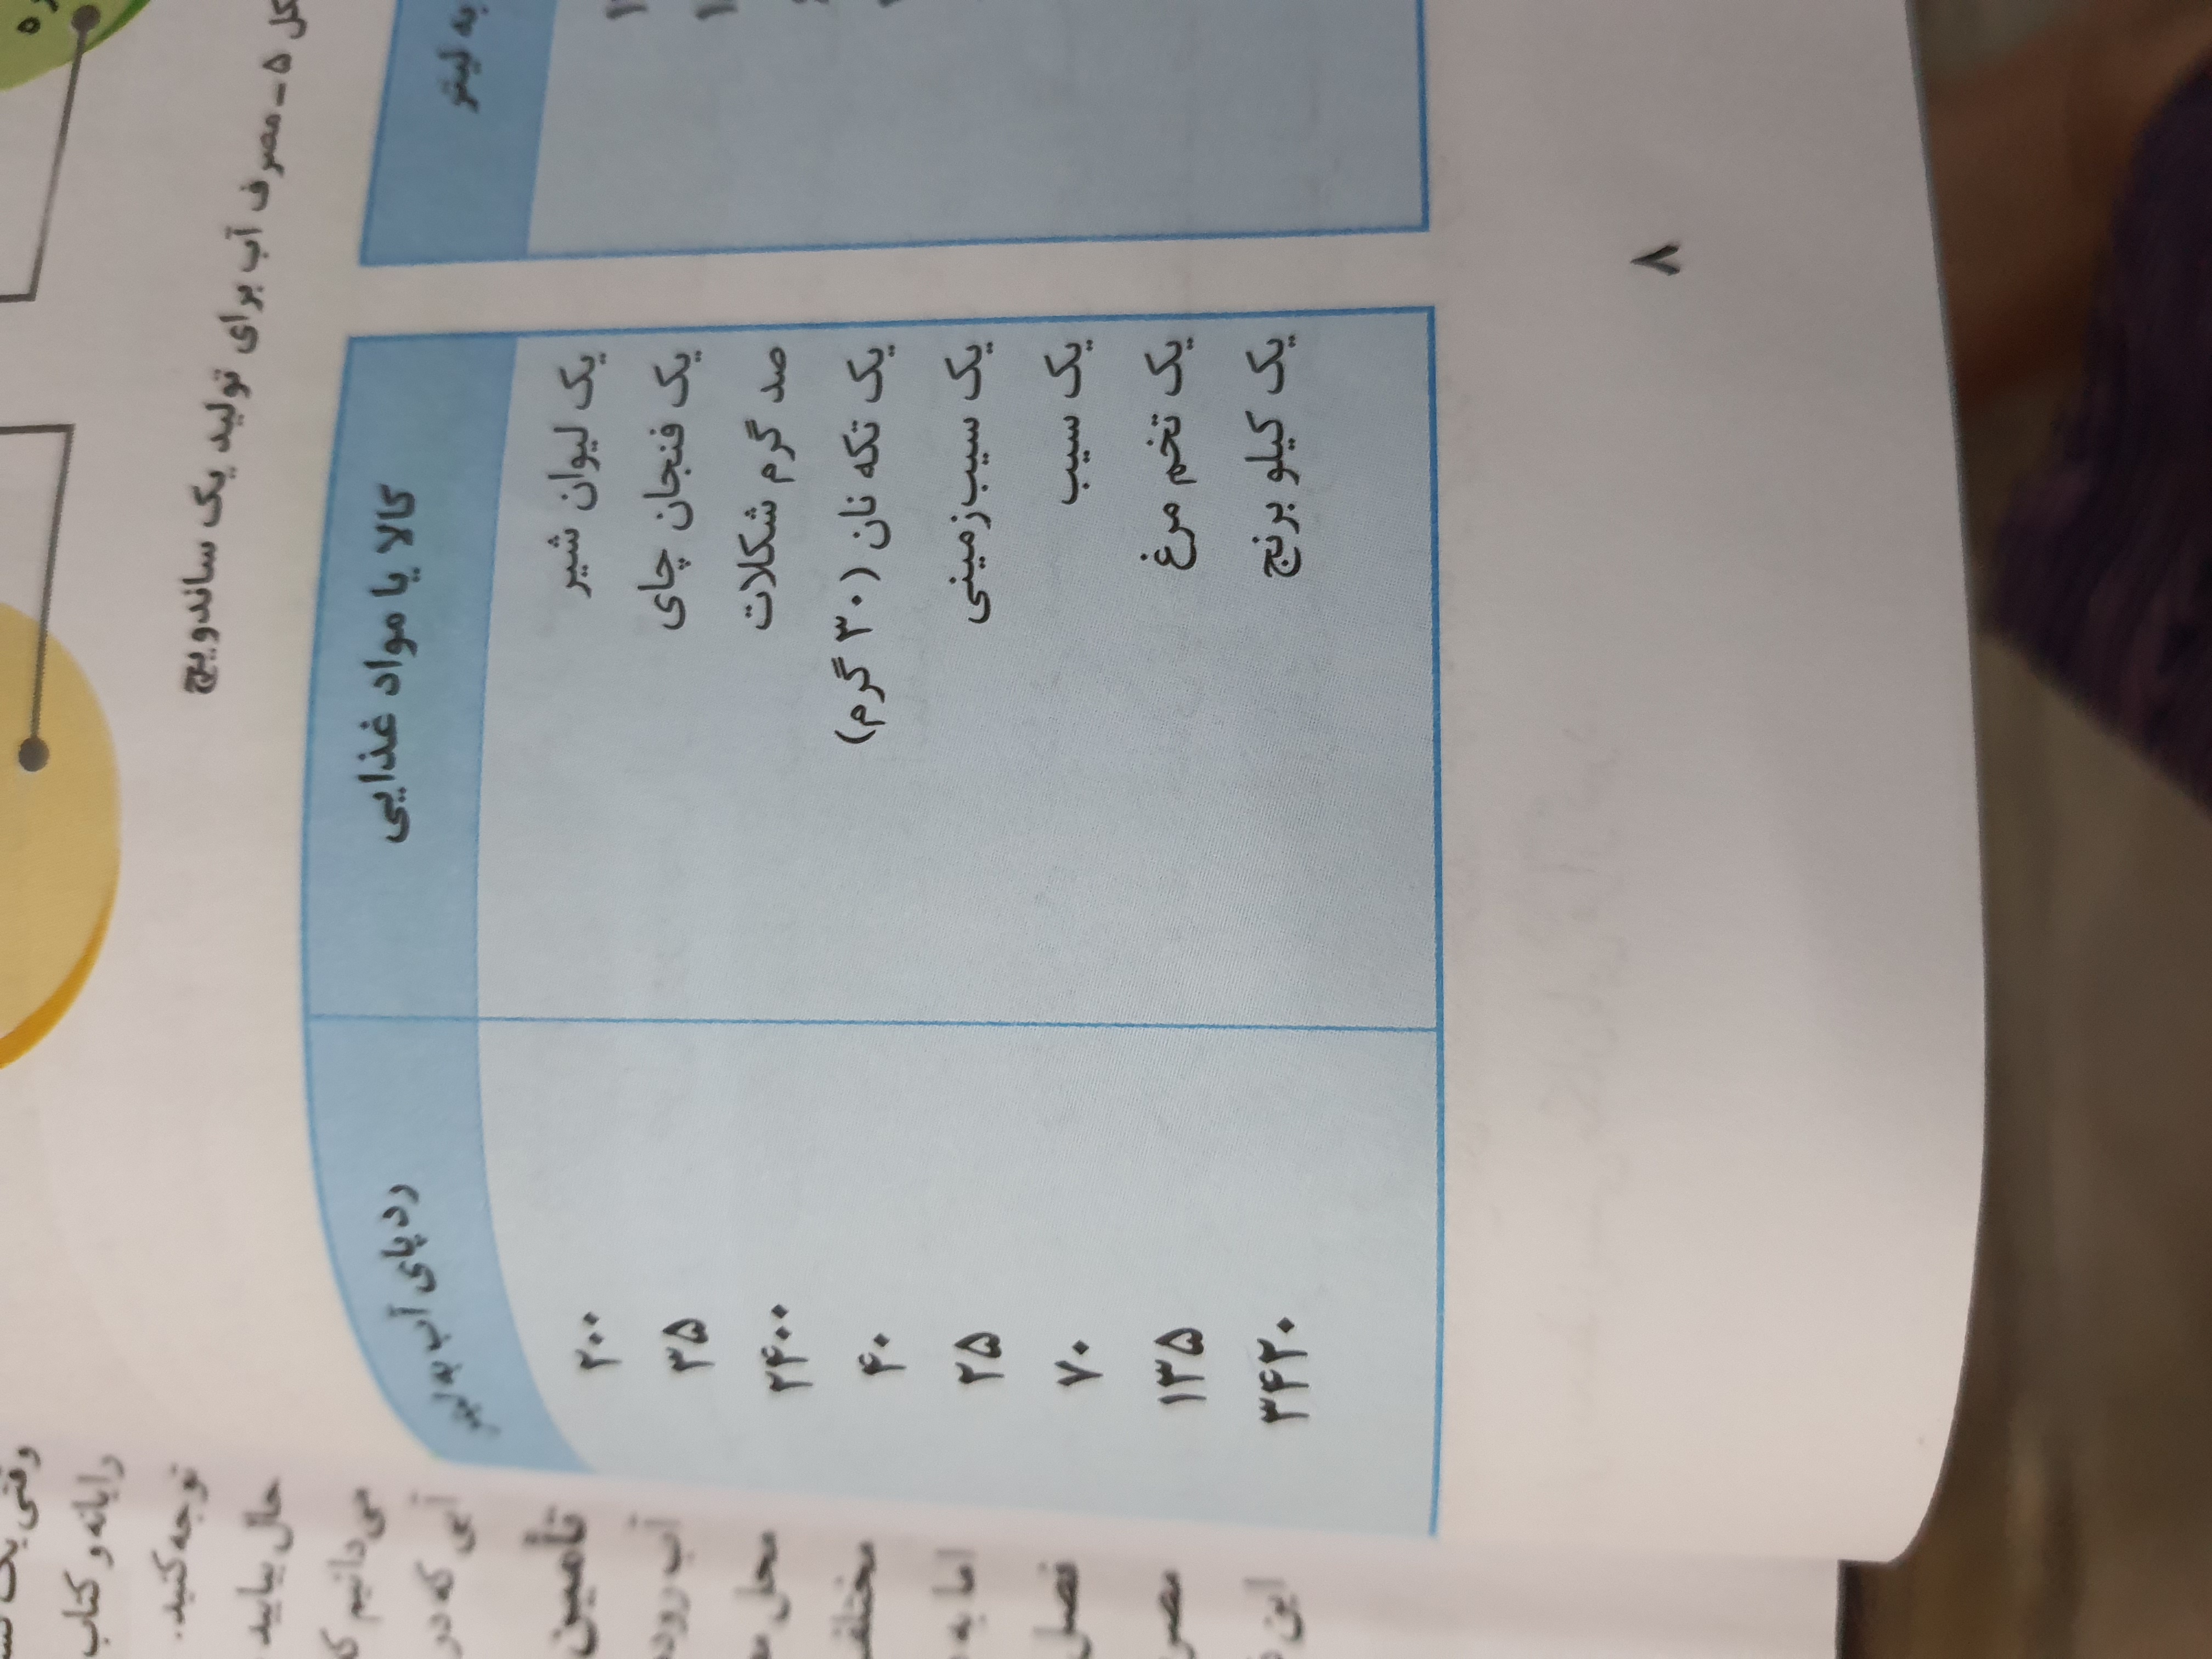 مصرف آب برای تولید یک ساندویچ
به لیتر
کالا یا مواد غذایی ردپای آب به لیتر
یک لیوان شیر ۲۰۰
یک فنجان چای ۳۵
صد گرم شکلات ۲۴۰۰
یک تکه نان (۳۰ گرم) ۴۰
یک سیب‌زمینی ۲۵
یک سیب ۷۰
یک تخم مرغ ۱۳۵
یک کیلو برنج ۳۴۲۰
۸
وقتی
رایانه و کتاب
توجه کنید.
حال بیایید
می‌دانیم
آبی که در
تأمین
آب
محل
اما به
فصل
این